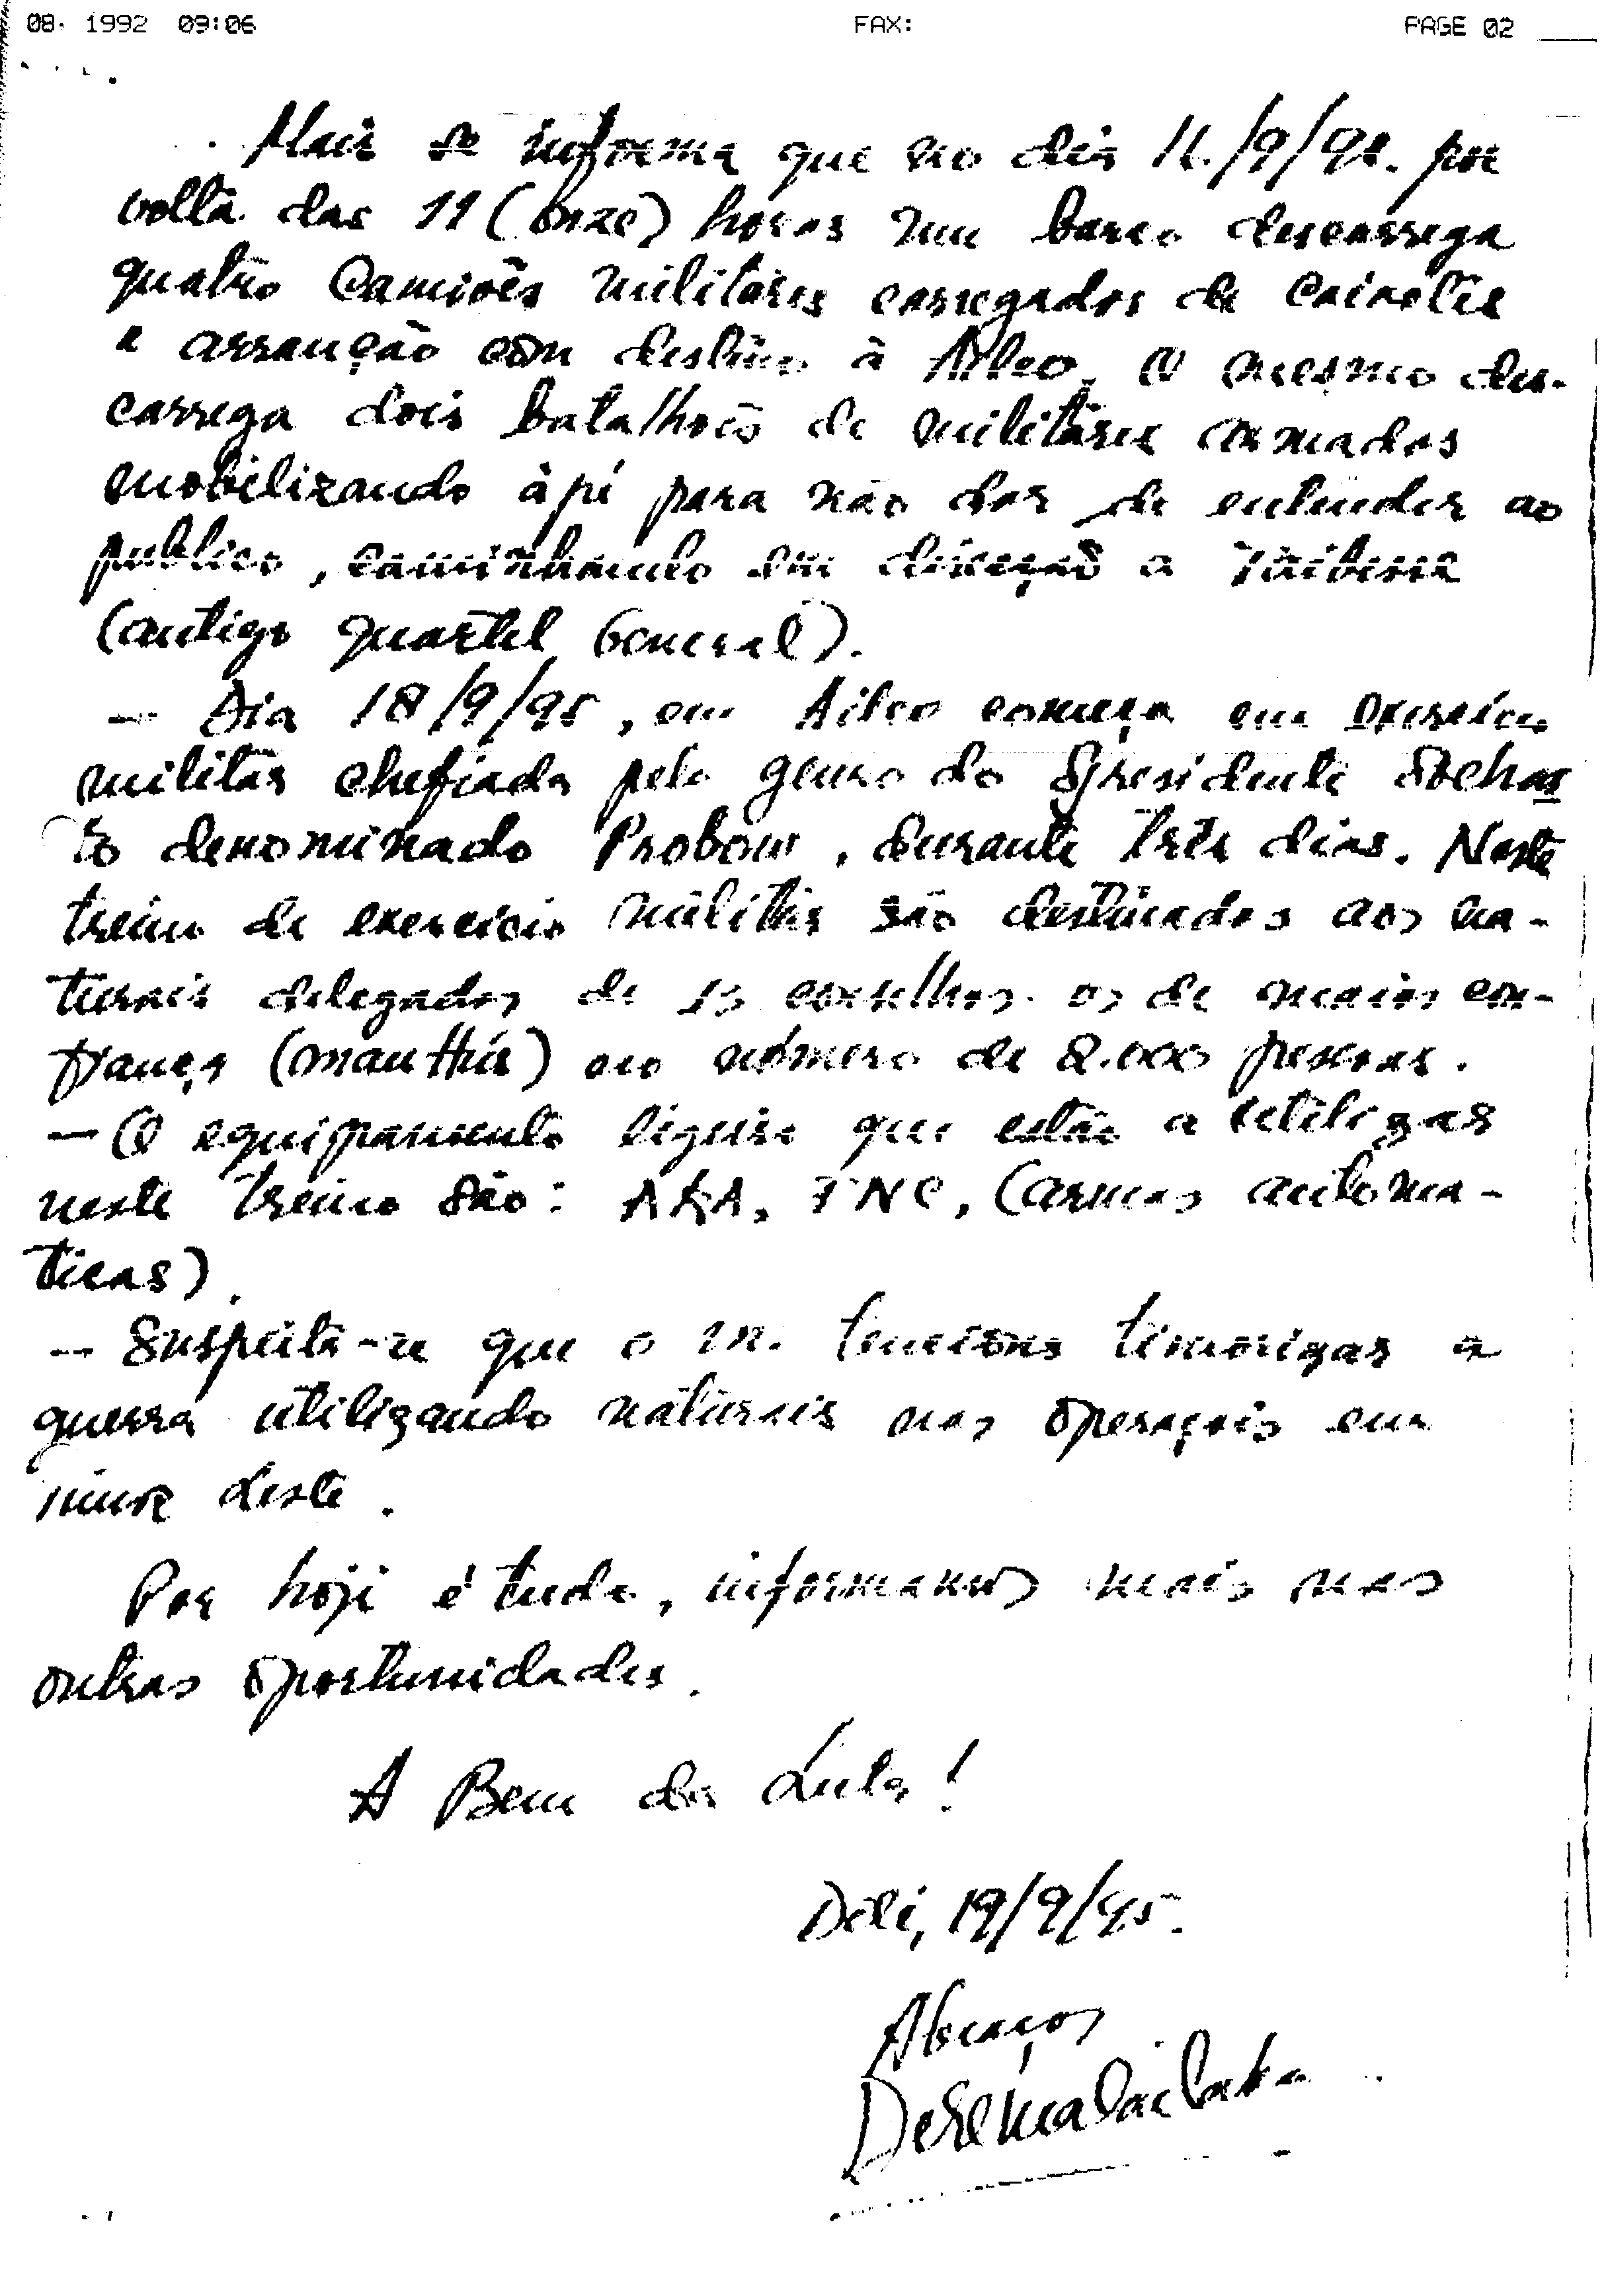 08. 1992 09:06 FAX: PAGE 02
Mais se informa que no dia 11/9/95. por
volta das 11 (onze) horas num barco descarrega
quatro Camiões militares carregados de caixotes
e arranção com destino à Aileo. O mesmo des-
carrega dois batalhões de militares armados
mobilizando à pé para não dar de entender ao
publico, caminhando em direcção a Taibesse
(antigo quartel General).
— Dia 18/9/95, em Aileo começa em exercício
militar chefiado pelo genro do Spresidente Sochar
to denominado Probow, durante três dias. Neste
treino de exercicio militar são destinados aos na-
turais delegados de 13 conselhos os de maior con-
fiança (manthús) no número de 2.000 pessoas.
— O equipamento ligeiro que estão a utilizar
neste treino são: AKA, FNC, (armas automa-
ticas).
— Suspeita-se que o in. tenciona timorizar a
guerra utilizando naturais nas operações em
deste.
Por hoje é tudo, informamos mais nas
outras oportunidades.
A Bem da Luta!
Dili, 19/9/95.
Abraços